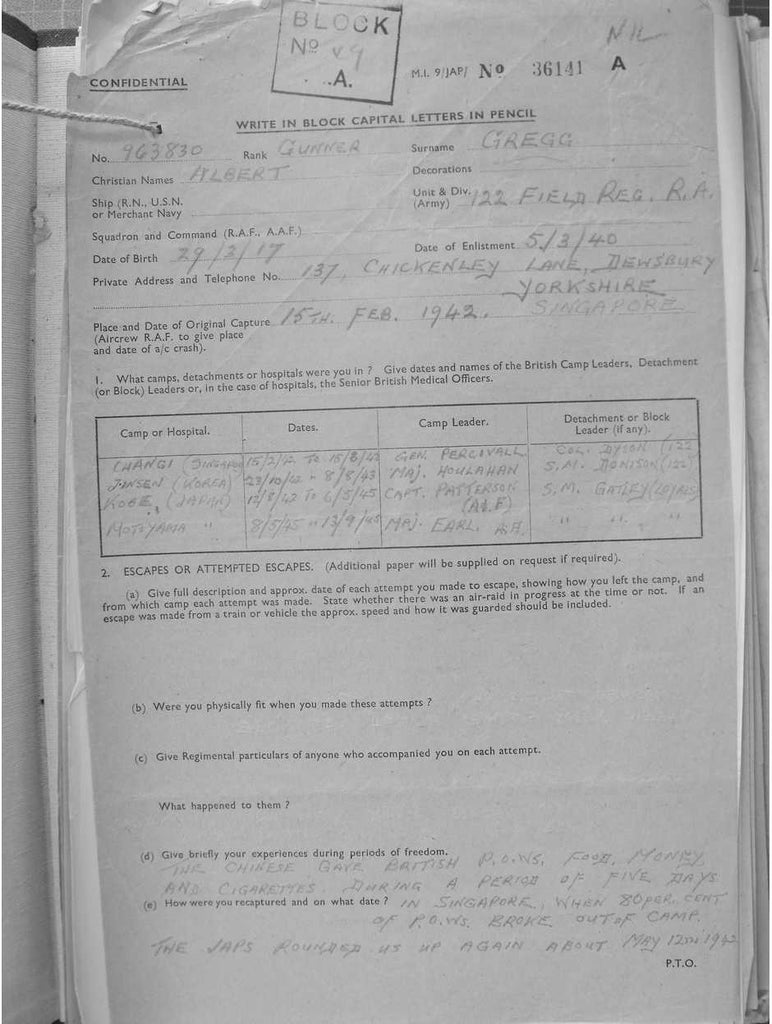 BLOCK
No 49
A.
NIL
M.I. 9/JAP/ No 36141 A
CONFIDENTIAL
WRITE IN BLOCK CAPITAL LETTERS IN PENCIL
No. 963830 Rank GUNNER Surname GREGG
Christian Names ALBERT Decorations
Ship (R.N., U.S.N. or Merchant Navy Unit & Div. (Army) 122 FIELD REG. R.A.
Squadron and Command (R.A.F., A.A.F.)
Date of Birth 29/2/17 Date of Enlistment 5/3/40
Private Address and Telephone No. 137, CHICKENLEY LANE, DEWSBURY
YORKSHIRE
Place and Date of Original Capture 15TH. FEB. 1942. SINGAPORE
(Aircrew R.A.F. to give place
and date of a/c crash).
1. What camps, detachments or hospitals were you in ? Give dates and names of the British Camp Leaders, Detachment
(or Block) Leaders or, in the case of hospitals, the Senior British Medical Officers.
Camp or Hospital. Dates. Camp Leader. Detachment or Block Leader (if any).
CHANGI (SINGAPORE) 15/2/42 TO 15/8/42 GEN. PERCIVALL COL. DYSON (122
JINSEN (KOREA) 23/10/42 " 8/8/43 MAJ. HOULAHAN S.M. DONISON (122)
KOBE, (JAPAN) 12/8/43 TO 6/5/45 CAPT. PATTERSON S.M. GATLEY (LOYALS)
(A.I.F)
MOTOYAMA " 8/5/45 " 13/9/45 MAJ. EARL. R.A. " " "
2. ESCAPES OR ATTEMPTED ESCAPES. (Additional paper will be supplied on request if required).
(a) Give full description and approx. date of each attempt you made to escape, showing how you left the camp, and
from which camp each attempt was made. State whether there was an air-raid in progress at the time or not. If an
escape was made from a train or vehicle the approx. speed and how it was guarded should be included.
(b) Were you physically fit when you made these attempts ?
(c) Give Regimental particulars of anyone who accompanied you on each attempt.
What happened to them ?
(d) Give briefly your experiences during periods of freedom.
THE CHINESE GAVE BRITISH P.O.WS. FOOD, MONEY
AND CIGARETTES DURING A PERIOD OF FIVE DAYS
(e) How were you recaptured and on what date ? IN SINGAPORE, WHEN 80 PER. CENT
OF P.O.WS. BROKE OUT OF CAMP.
THE JAPS ROUNDED US UP AGAIN ABOUT MAY 12TH 1942
P.T.O.